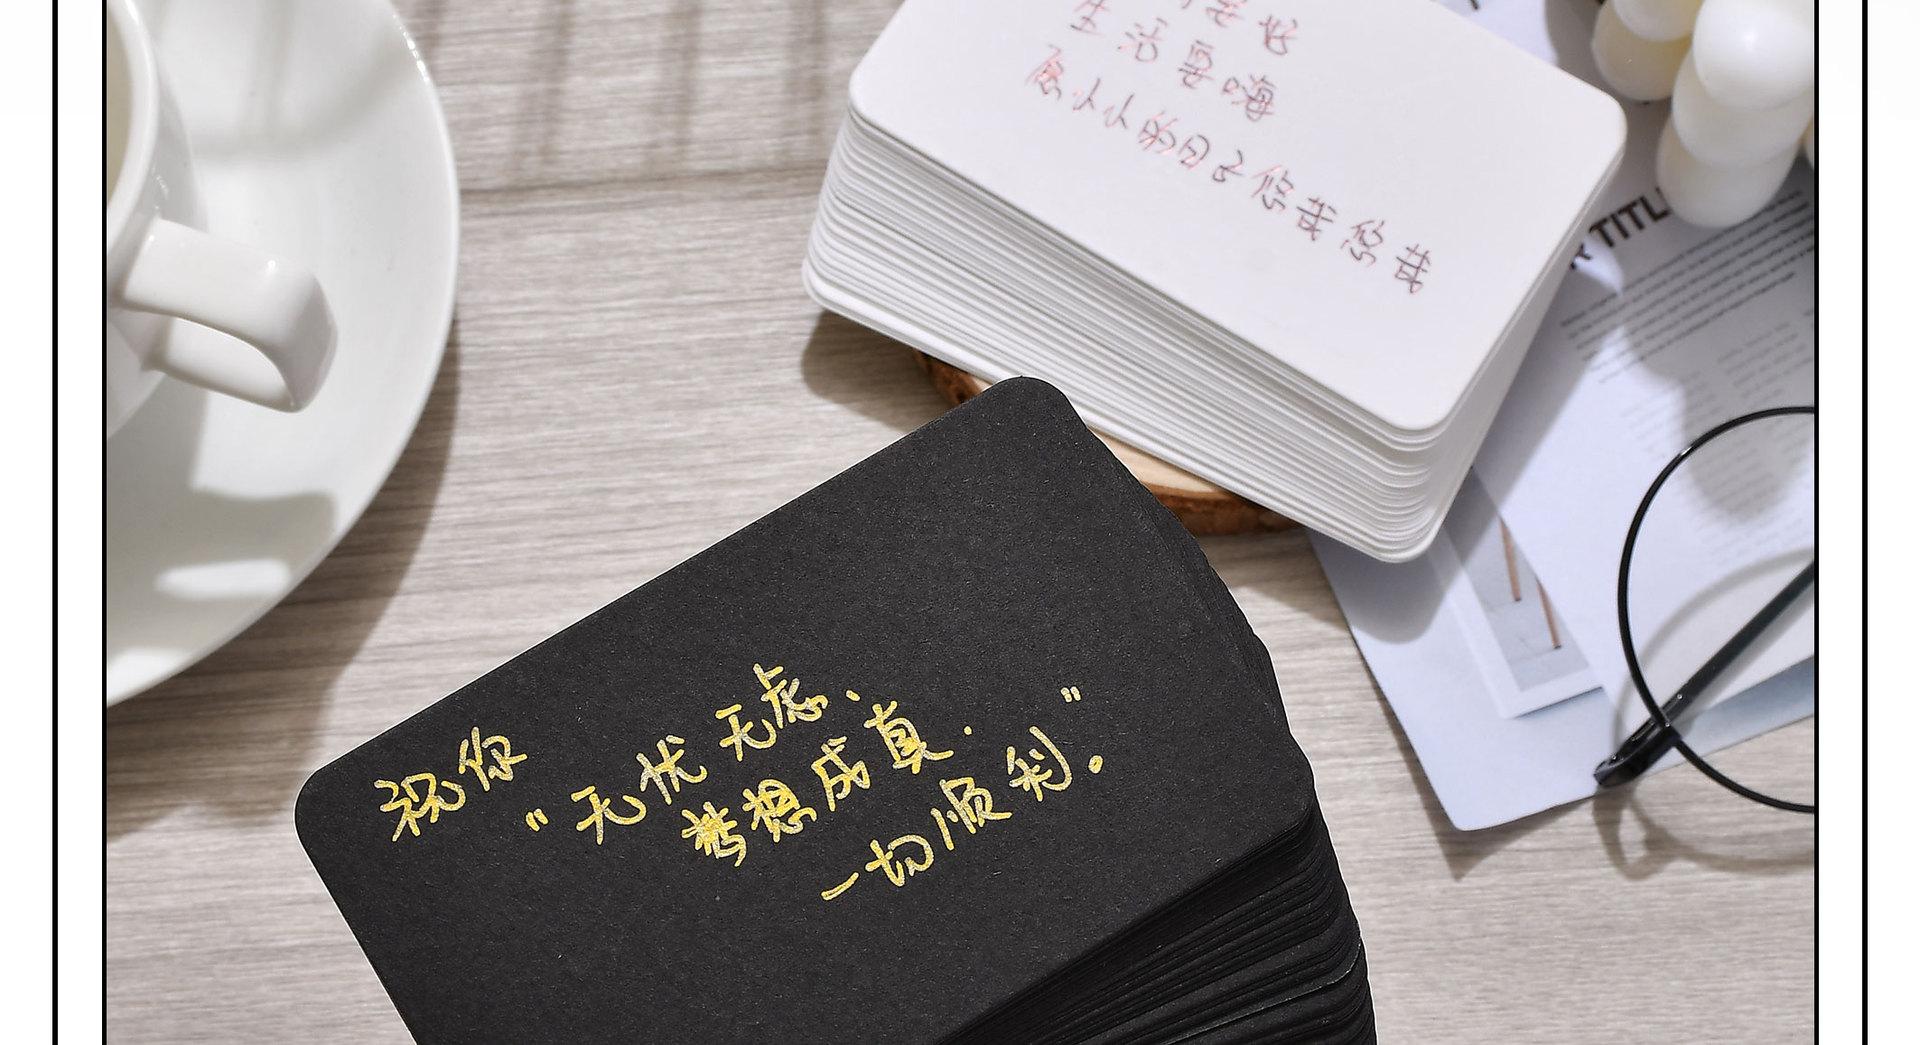 生活要嗨
愿小小的日子悠哉悠哉
TITL
祝你
"无忧无虑、
梦想成真.
一切顺利。"